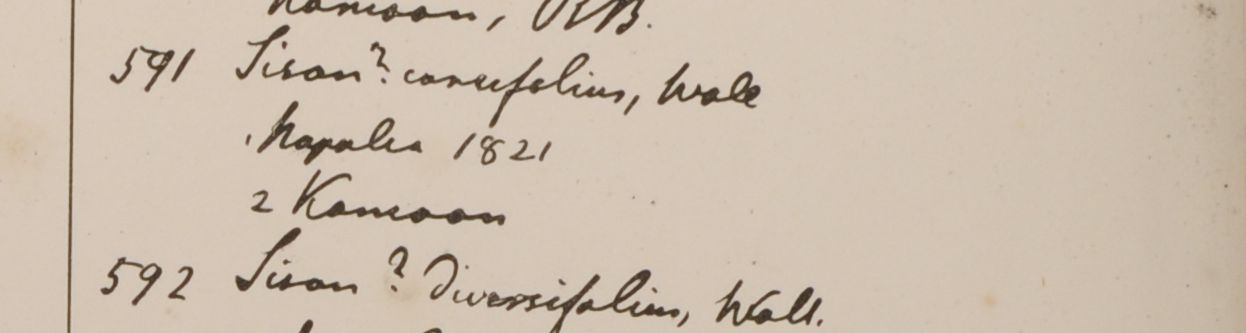 Kamoon, RB.
591 Sison? carvifolium, Wall
1 Napalia 1821
2 Kamoon
592 Sison? diversifolium, Wall.